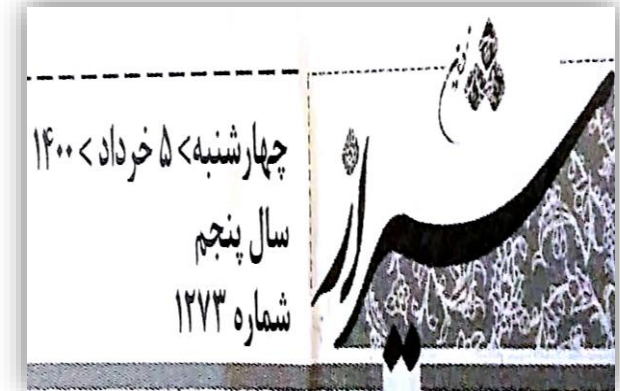 شیراز
چهارشنبه> ۵ خرداد > ۱۴۰۰
سال پنجم
شماره ۱۲۷۳